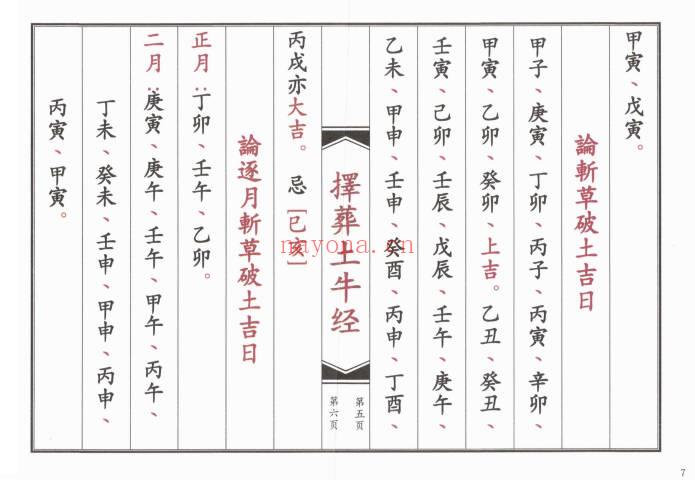 甲寅、戊寅。
論斬草破土吉日
甲子、庚寅、丁卯、丙子、丙寅、辛卯、
甲寅、乙卯、癸卯、上吉。乙丑、癸丑、
壬寅、己卯、壬辰、戊辰、壬午、庚午、
乙未、甲申、壬申、癸酉、丙申、丁酉、
擇葬土牛经
第五页
第六页
nayona.cn
丙戌亦大吉。忌[已亥]
論逐月斬草破土吉日
正月:丁卯、壬午、乙卯。
二月:庚寅、庚午、壬午、甲午、丙午、
丁未、癸未、壬申、甲申、丙申、
丙寅、甲寅。
7